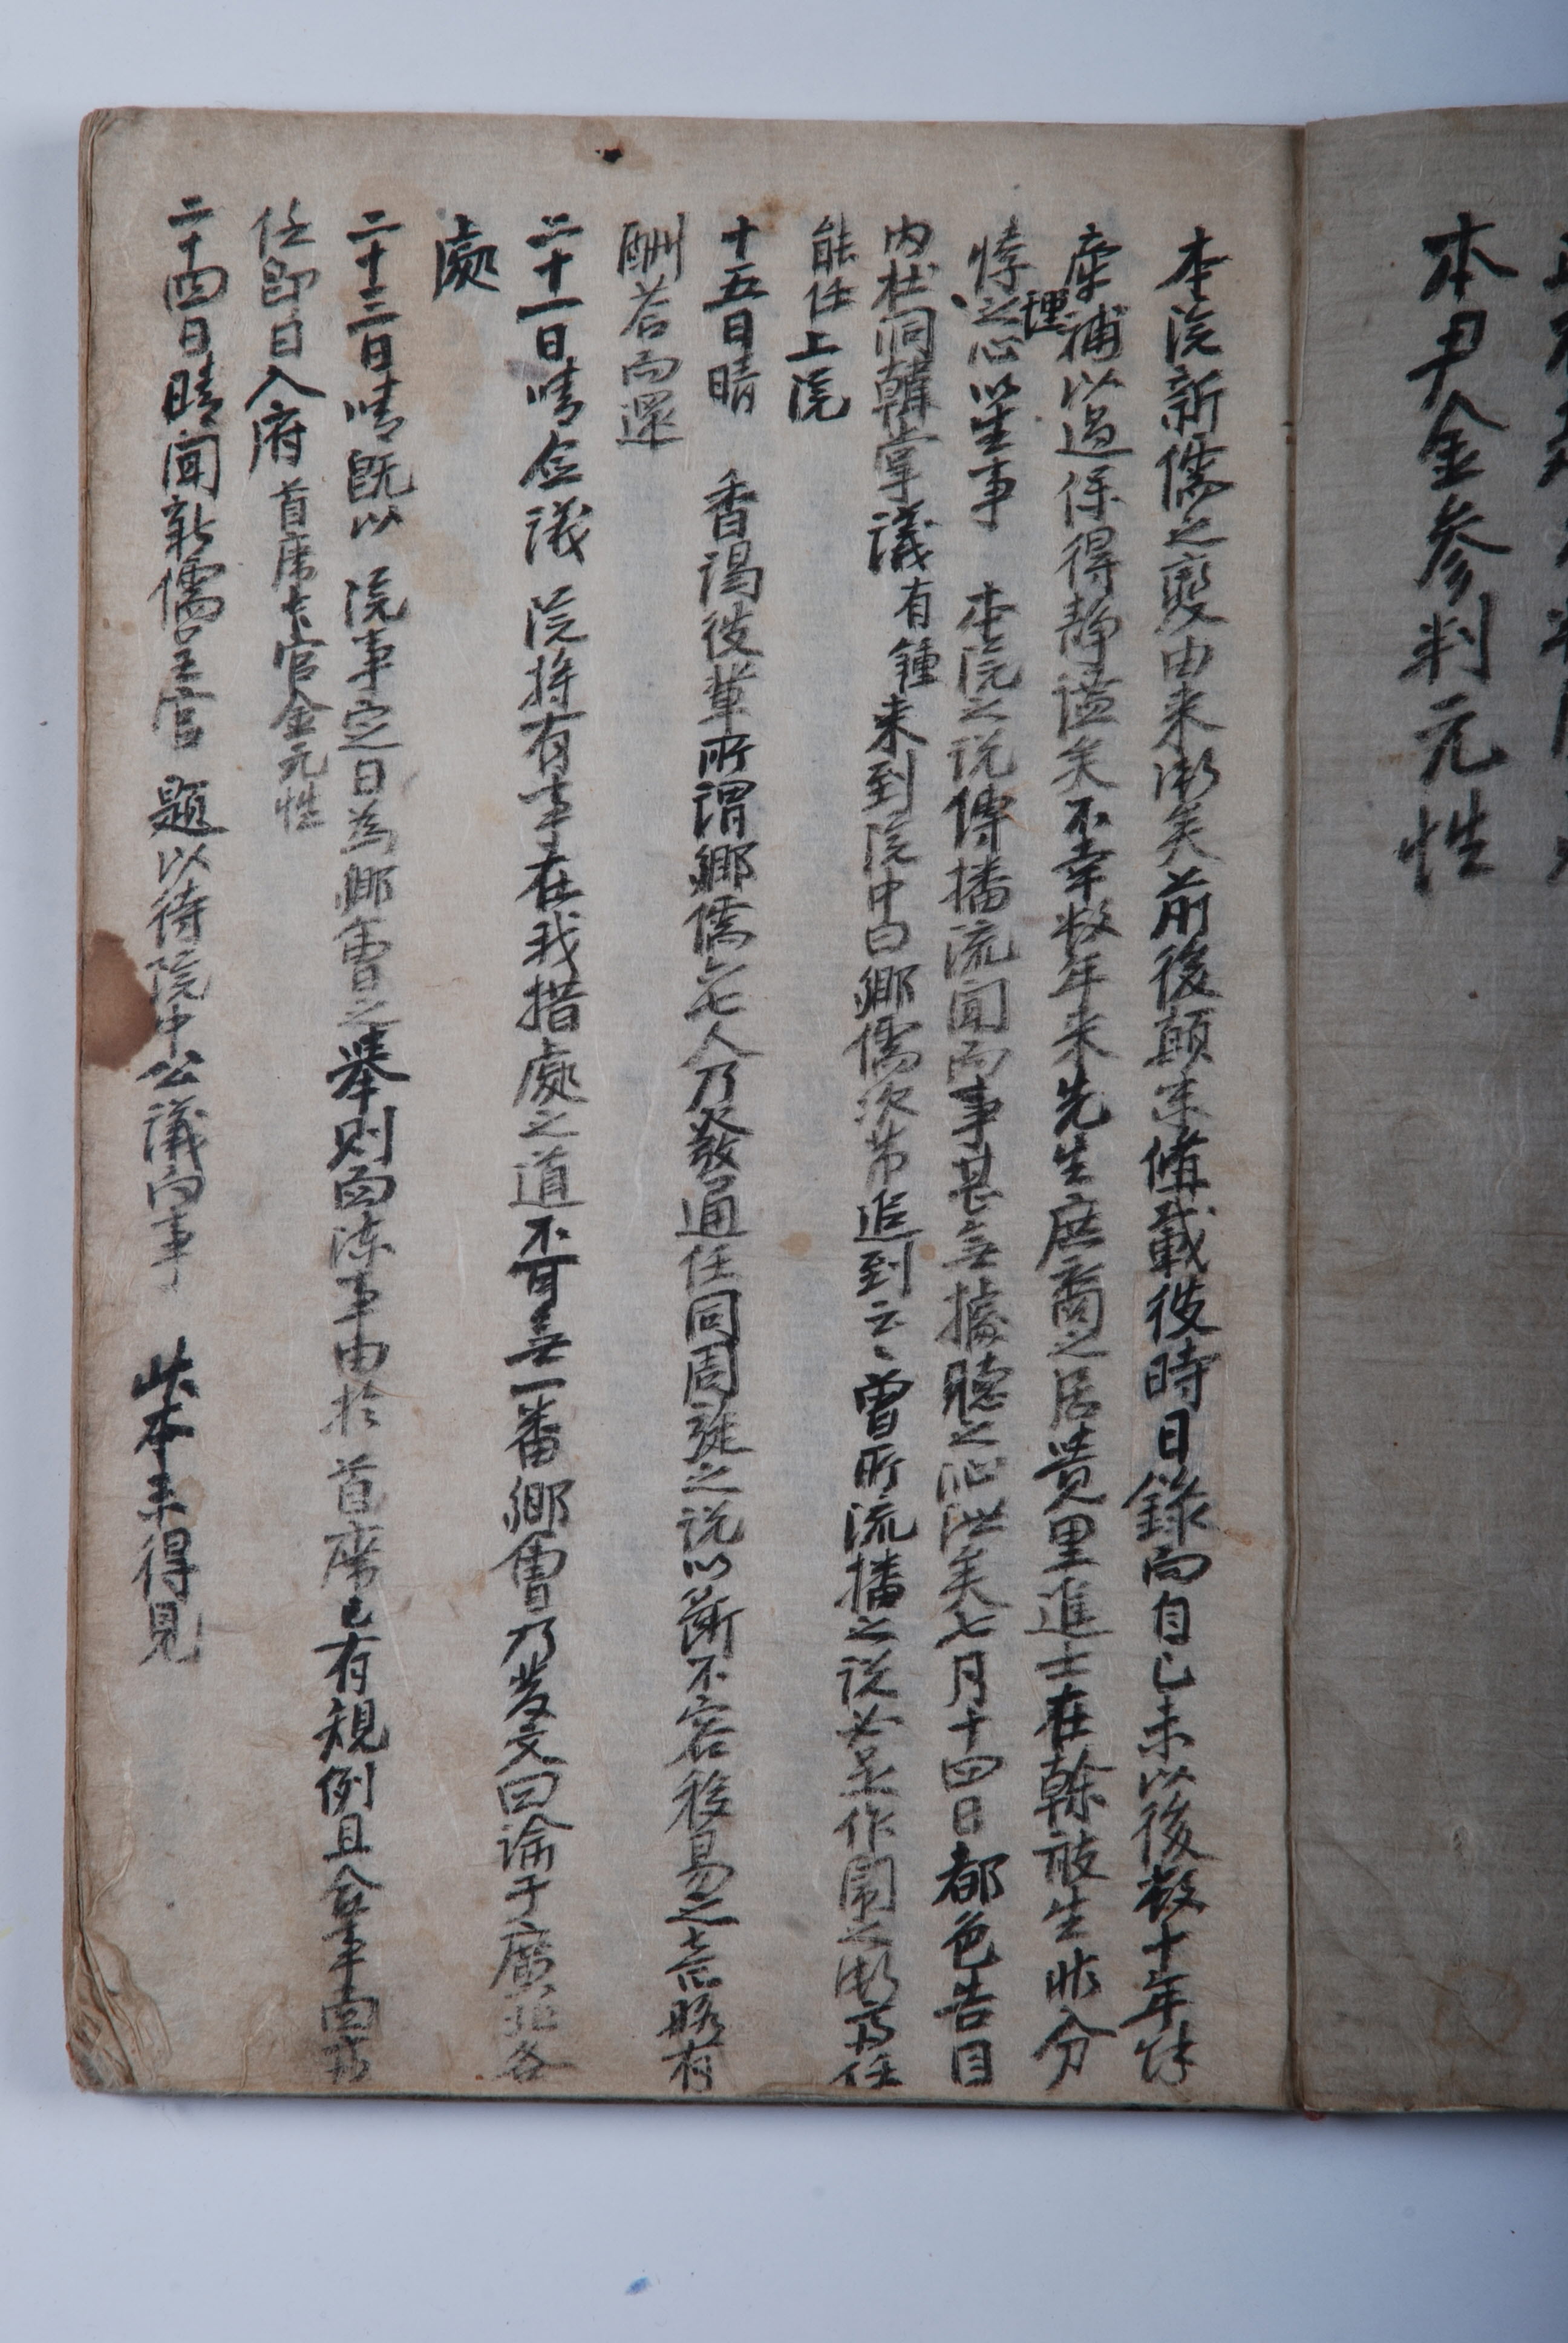 本尹金參判元性
本院新儒之變由来漸矣前後顛末備載彼時日錄而自己未以後数十年咊
牽補以過保得靜謐矣不幸数年来先生庶裔之居貴里進士在榦敢生非分
悖理之心以生事 本院之说傳播流聞而事甚無據聽之沁泄矣七月十四日都色告目
内杜洞韓掌議有鍾来到院中曰鄉儒次第追到云云曾所流播之说必是作鬧之漸齋任
能任上院
十五日晴 香謁彼輩所謂鄉儒六七人乃發通任同周旋之说以斷不容移易之意略有
酬若而還
二十一日晴仝議 院將有事在我措處之道不可無一番鄉會乃发文回諭于廣北各
處
二十三日晴既以 院事定日為鄉會之舉则面陳事由於 首席已有規例且仝事面
任即日入府首席本官金元性
二十四日晴聞新儒呈官 題以待院中公議向事 此本未得見